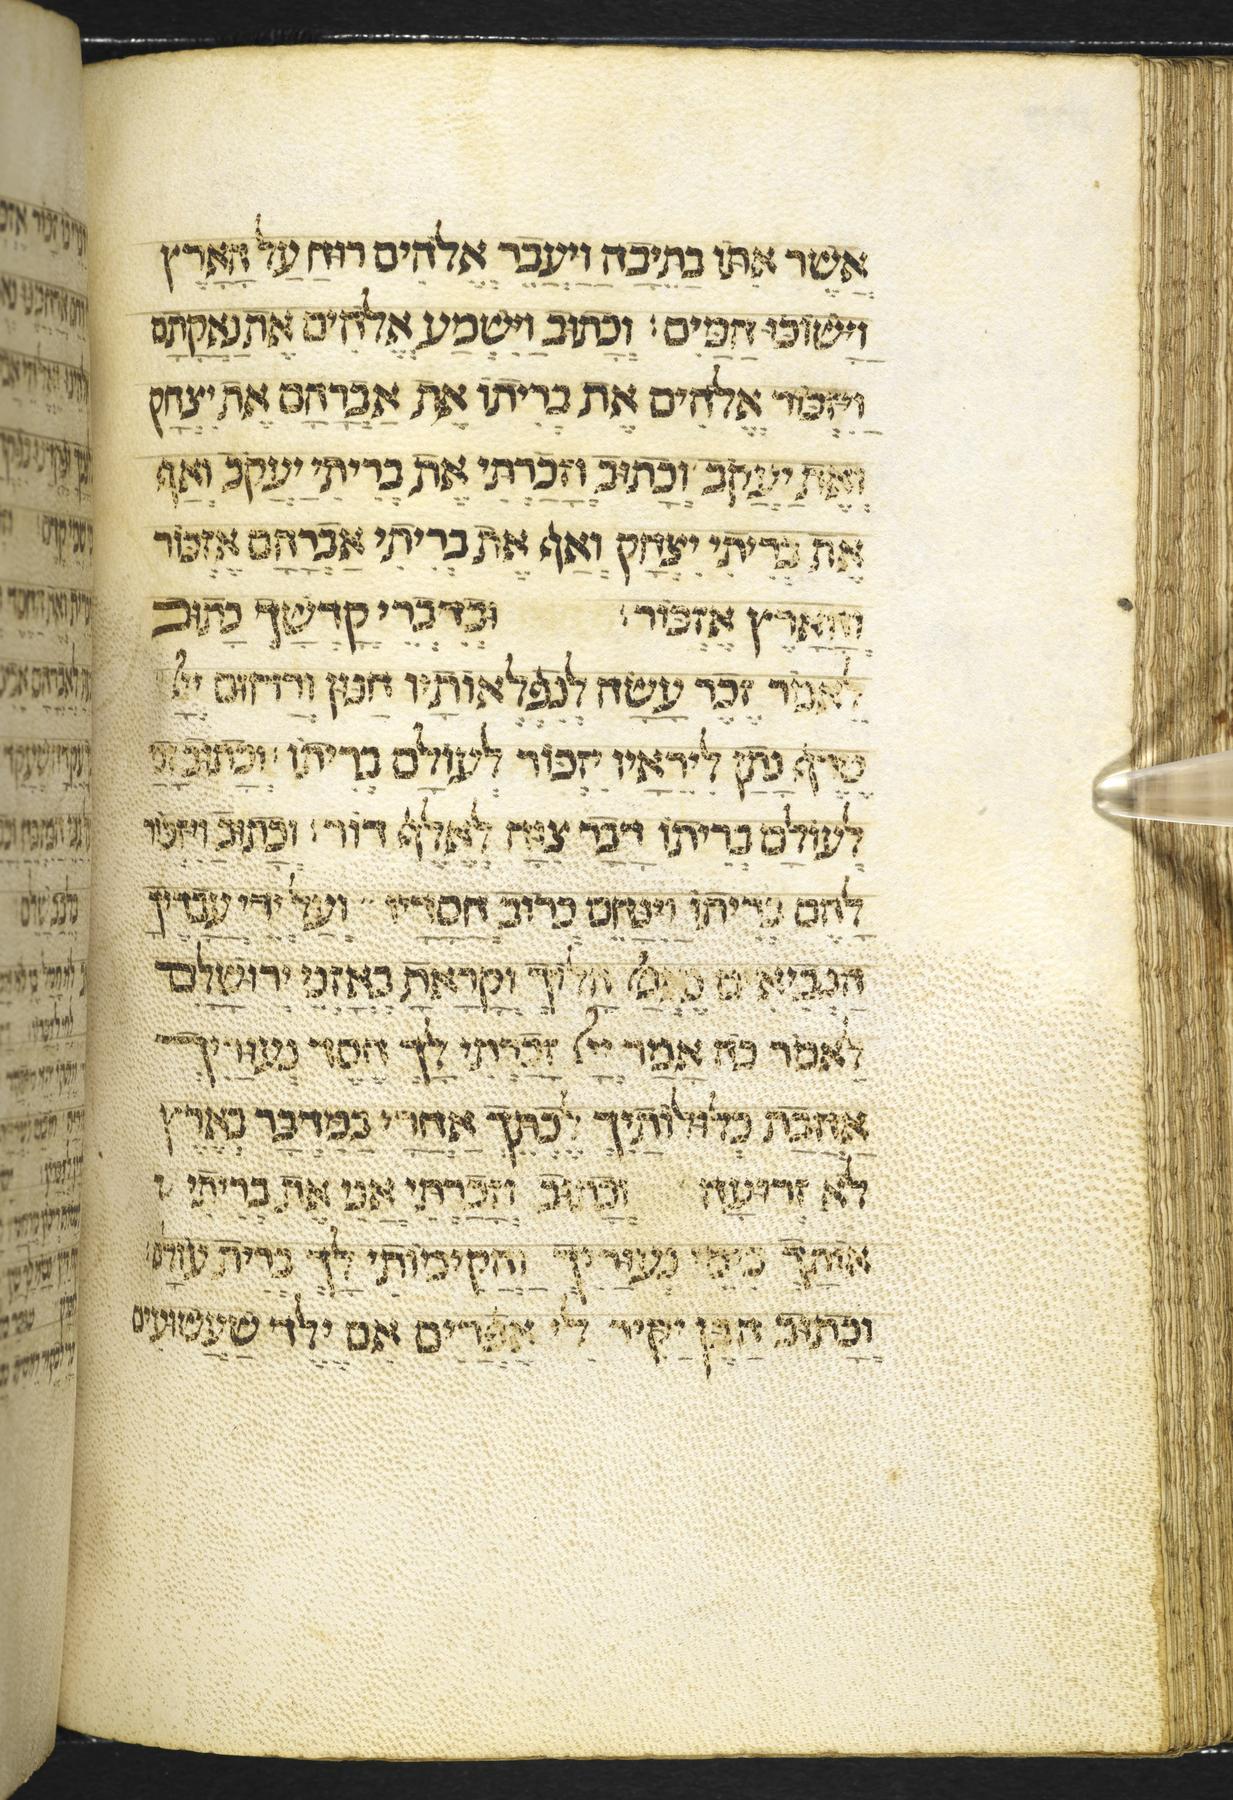 אֲשֶׁר אִתּוֹ בַּתֵּיבָה וַיַּעֲבֵר אֱלֹהִים רוּחַ עַל הָאָרֶץ
וַיָּשׁוֹכּוּ הַמַּיִם: וְכָתוּב וַיִּשְׁמַע אֱלֹהִים אֶת נַאֲקָתָם
וַיִּזְכּוֹר אֱלֹהִים אֶת בְּרִיתוֹ אֶת אַבְרָהָם אֶת יִצְחָק
וְאֶת יַעֲקֹב וְכָתוּב וְזָכַרְתִּי אֶת בְּרִיתִי יַעֲקֹב וְאַף
אֶת בְּרִיתִי יִצְחָק וְאַף אֶת בְּרִיתִי אַבְרָהָם אֶזְכּוֹר
וְהָאָרֶץ אֶזְכּוֹר: וּבְדִבְרֵי קָדְשְׁךָ כָּתוּב
לֵאמֹר זֵכֶר עָשָׂה לְנִפְלְאוֹתָיו חַנּוּן וְרַחוּם יְיָ
טֶרֶף נָתַן לִירֵאָיו יִזְכּוֹר לְעוֹלָם בְּרִיתוֹ: וְכָתוּב זכ
לְעוֹלָם בְּרִיתוֹ דָּבָר צִוָּה לְאֶלֶף דּוֹר: וְכָתוּב וַיִּזְכּוֹר
לָהֶם בְּרִיתוֹ וַיִּנָּחֵם כְּרוֹב חֲסָדָיו: וְעַל יְדֵי עֲבָדֶיךָ
הַנְּבִיאִים הָלוֹךְ וְקָרָאתָ בְּאָזְנֵי יְרוּשָׁלַם
לֵאמֹר כֹּה אָמַר יְיָ זָכַרְתִּי לָךְ חֶסֶד נְעוּרַיִךְ
אַהֲבַת כְּלוּלוֹתַיִךְ לֶכְתֵּךְ אַחֲרַי בַּמִּדְבָּר בְּאֶרֶץ
לֹא זְרוּעָה וְכָתוּב וְזָכַרְתִּי אֲנִי אֶת בְּרִיתִי
אוֹתָךְ בִּימֵי נְעוּרַיִךְ וַהֲקִימוֹתִי לָךְ בְּרִית עוֹלָם
וְכָתוּב הֲבֵן יַקִּיר לִי אֶפְרַיִם אִם יֶלֶד שַׁעֲשׁוּעִים